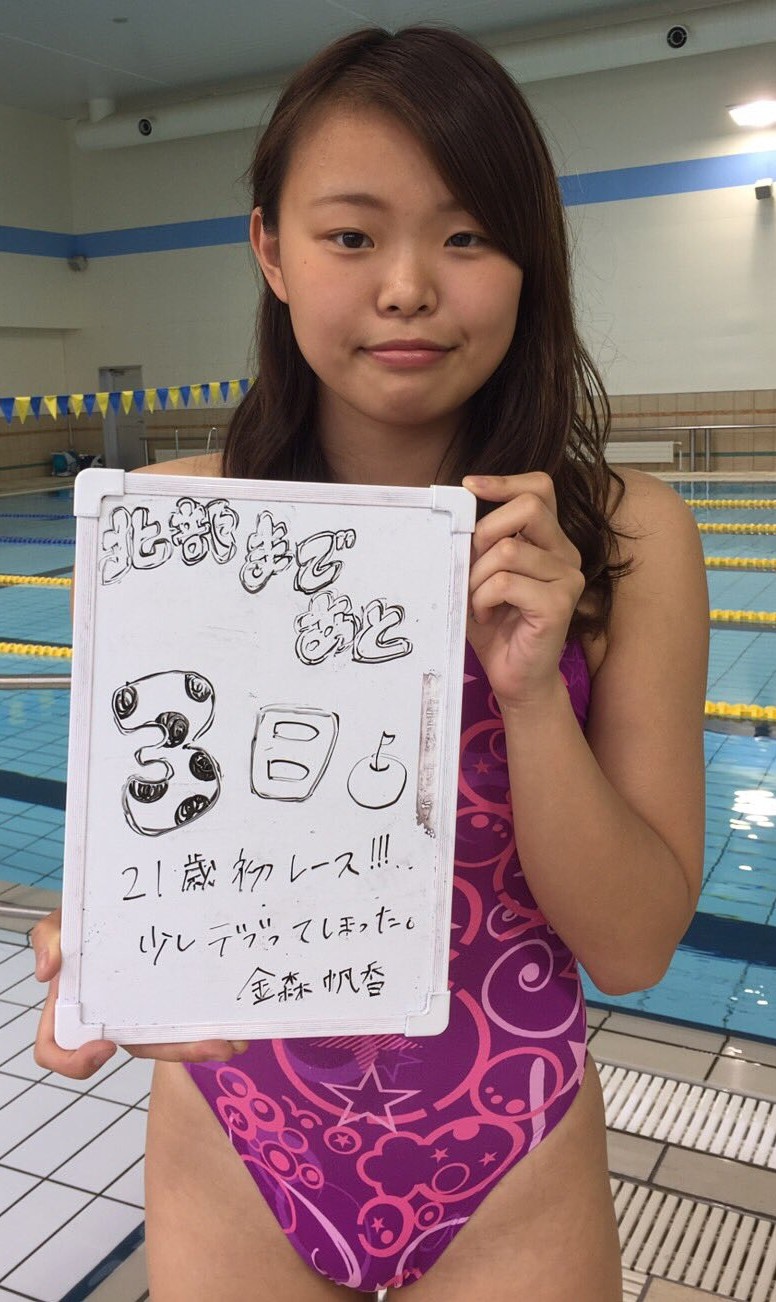 北部まで
あと
3日。
21歳初レース!!!..
少しデブってしまった。
金森帆香